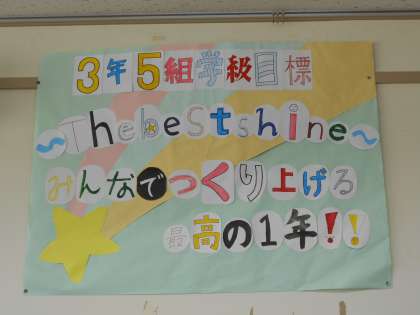 3年5組学級目標
~Thebestshine~
みんなでつくり上げる
最高の1年!!